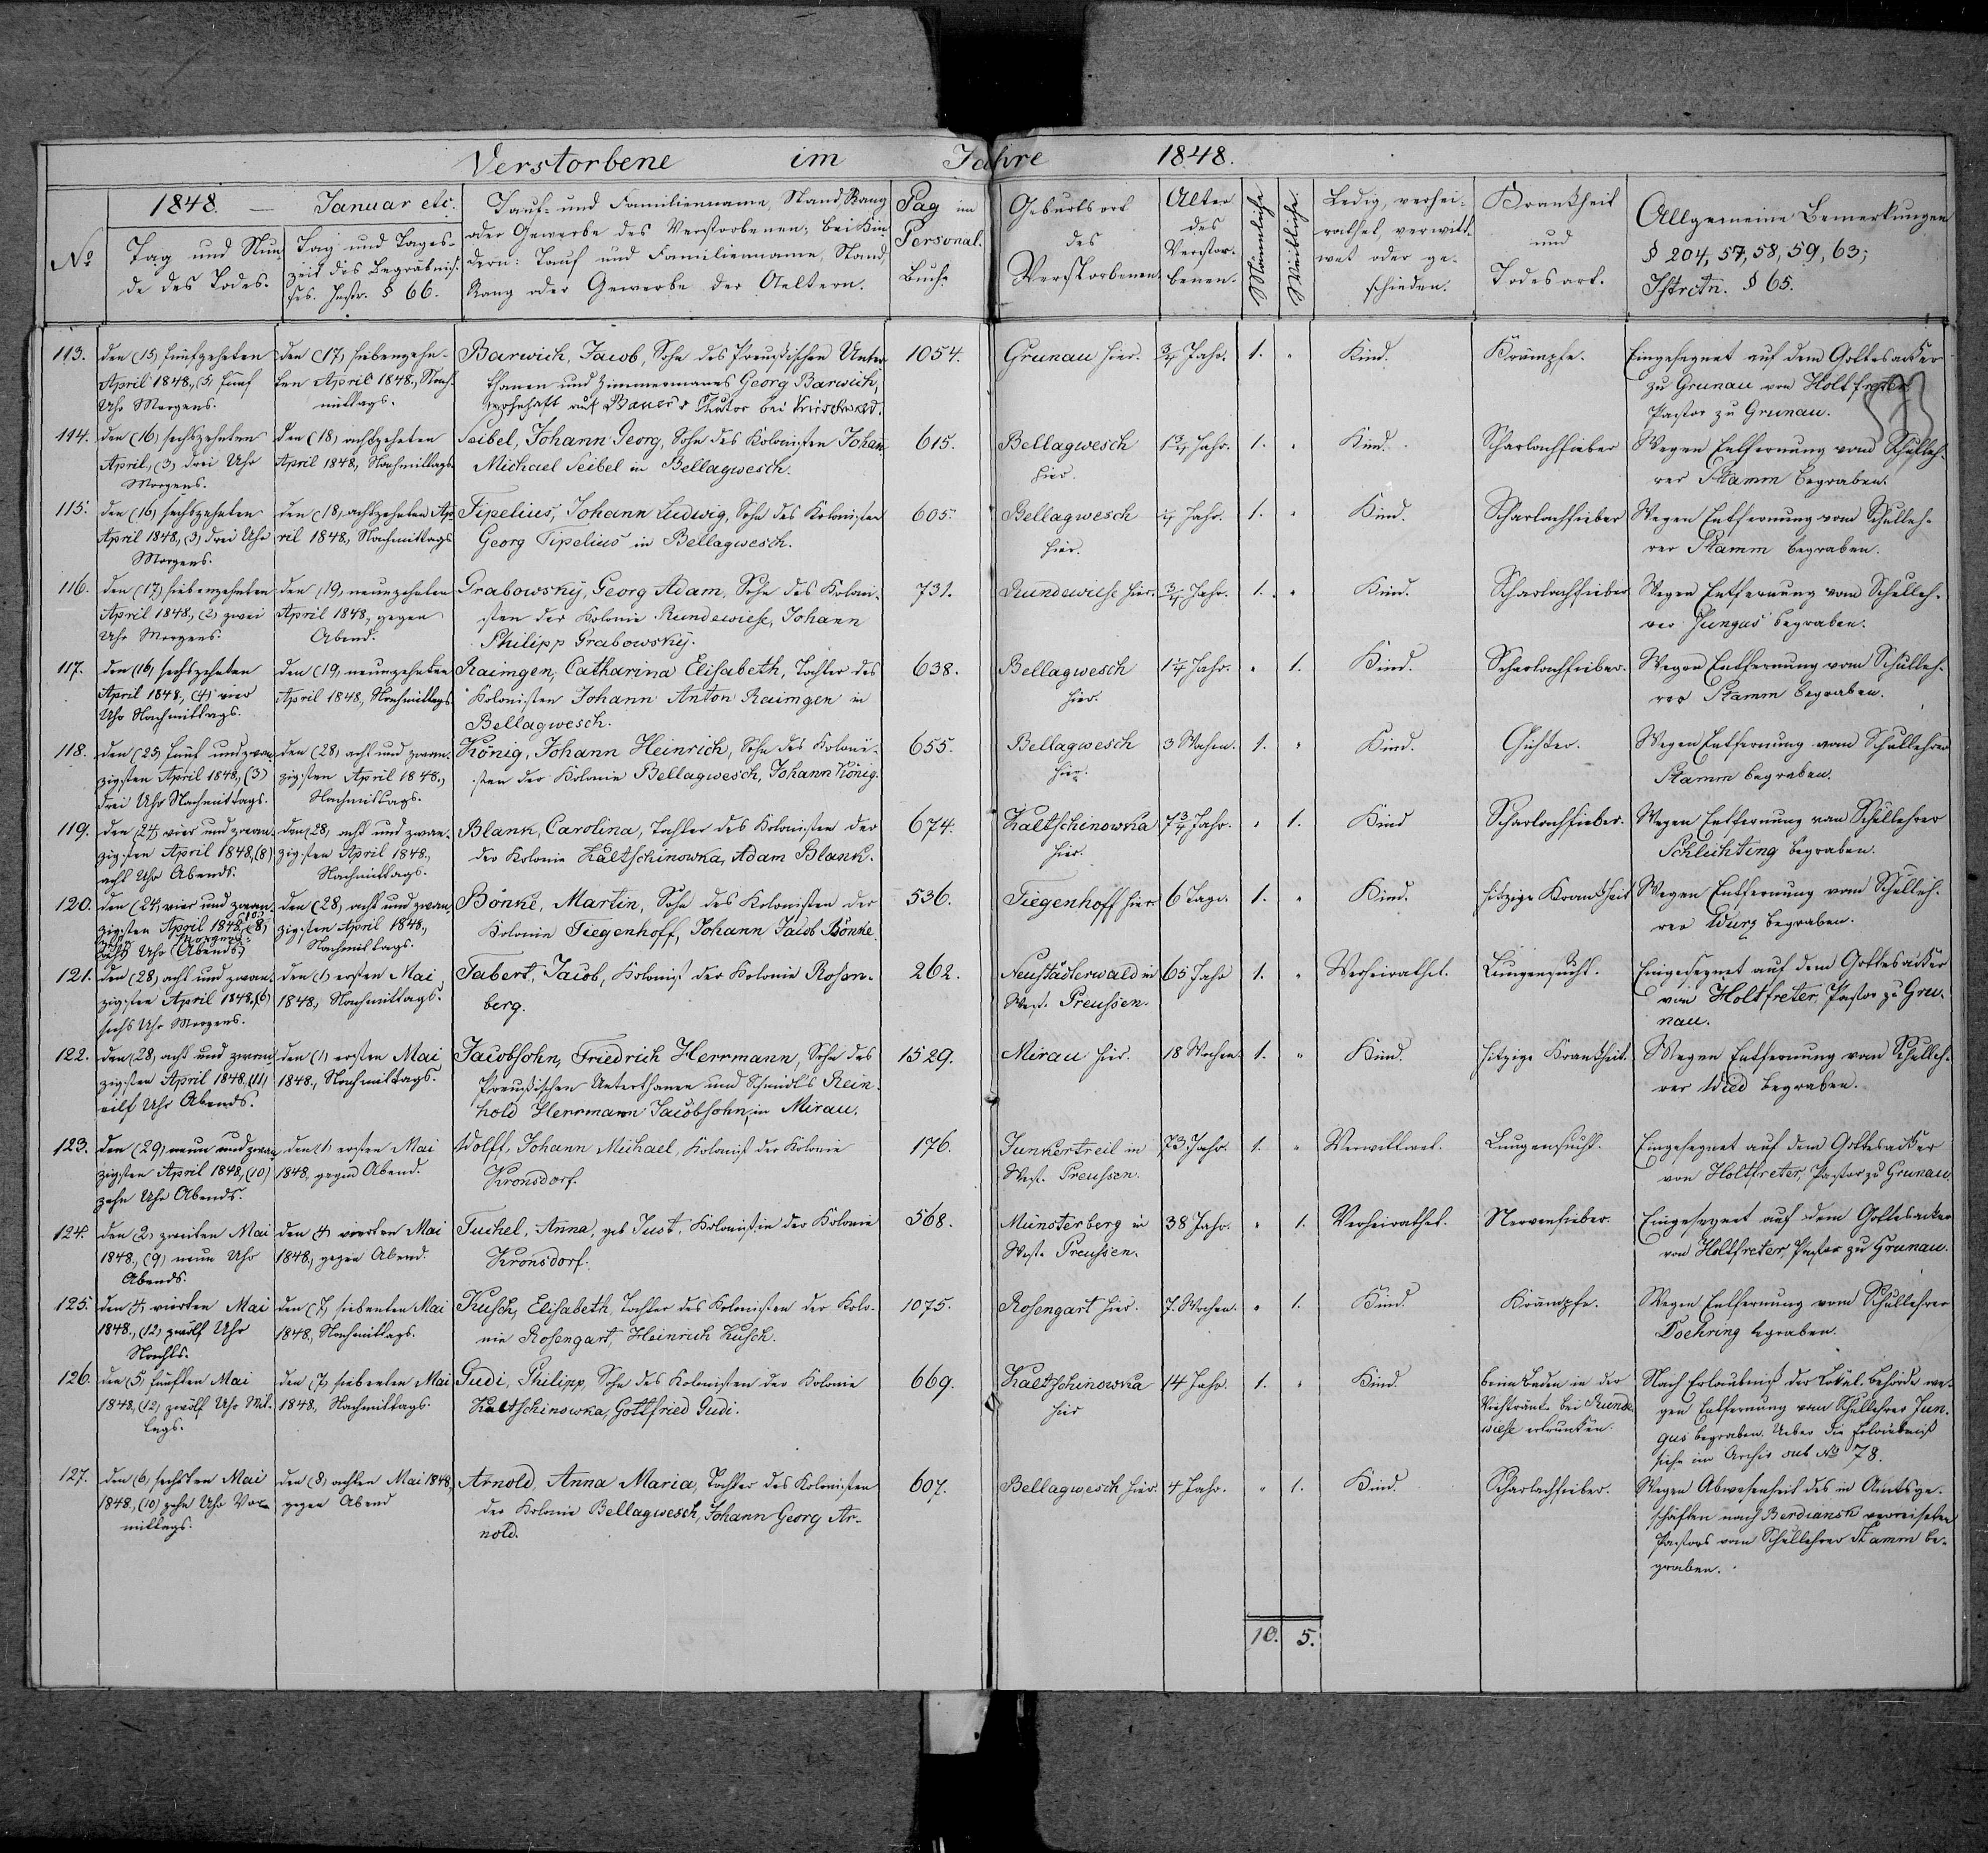 Verstorbene im Jahre 1848.
1848. — Januar etc.
No
Tag und Stun
de des Todes.
Tag und Tages-
zeit des Begräbnis-
ses. Instr. § 66.
Tauf- und Familienname, Stand, Rang
oder Gewerbe des Verstorbenen; bei Kin
dern: Tauf und Familienname, Stand,
Rang oder Gewerbe der Aeltern.
Pag im
Personal-
Buch.
Geburtsort
des
Verstorbenen.
Alter
des
Verstor-
benen.
Männliche
Weibliche
Ledig, verhei-
rathet, verwitt-
wet oder ge-
schieden.
Krankheit
und
Todesart.
Allgemeine Bemerkungen
§ 204, 57, 58, 59, 63;
Istrctn. § 65.
113.
den (15) fünfzehnten
April 1848., (5) fünf
Uhr Morgens.
den (17) siebenzehn-
ten April 1848., Nach-
mittags.
Barwich, Jacob, Sohn des Preußischen Unter-
thanen und Zimmermanns Georg Barwich,
wohnhaft auf Bauer's Chutor bei
1054.
Grunau hier.
3/4 Jahr.
1.
"
Kind.
Krämpfe.
Eingesegnet auf dem Gottesacker
zu Grunau von Holtfreter
Pastor zu Grunau.
114.
den (16) sechszehnten
April, (3) drei Uhr
Morgens.
den (18) achtzehnten
April 1848, Nachmittags
Seibel, Johann Georg, Sohn des Kolonisten Johann
Michael Seibel in Bellagwesch.
615.
Bellagwesch
hier.
1 3/4 Jahr.
1.
"
Kind.
Scharlachfieber
Wegen Entfernung vom Schulleh-
rer Stamm begraben.
115.
den (16) sechszehnten
April 1848, (3) drei Uhr
Morgens.
den (18) achtzehnten Ap-
ril 1848, Nachmittags
Tipelius, Johann Ludwig, Sohn des Kolonisten
Georg Tipelius in Bellagwesch.
605.
Bellagwesch
hier.
Jahr.
1.
"
Kind.
Scharlachfieber
Wegen Entfernung vom Schulleh-
rer Stamm begraben.
116.
den (17) siebenzehnten
April 1848., (2) zwei
Uhr Morgens.
den (19) neunzehnten
April 1848, gegen
Abend.
Grabowsky, Georg Adam, Sohn des Koloni-
sten der Kolonie Rundewiese, Johann
Philipp Grabowsky.
731.
Rundewiese hier.
3/4 Jahr.
1.
"
Kind.
Scharlachfieber
Wegen Entfernung vom Schulleh-
rer Jungus begraben.
117.
den (16) sechszehnten
April 1848., (4) vier
Uhr Nachmittags.
den (19) neunzehnten
April 1848, Nachmittags
Raimgen, Catharina Elisabeth, Tochter des
Kolonisten Johann Anton Raimgen in
Bellagwesch.
638.
Bellagwesch
hier.
1 1/4 Jahr.
"
1.
Kind.
Scharlachfieber.
Wegen Entfernung vom Schulleh-
rer Stamm begraben.
118.
den (25) fünf und zwan
zigsten April 1848., (3)
drei Uhr Nachmittags.
den (28) acht und zwan-
zigsten April 1848.,
Nachmittags.
König, Johann Heinrich, Sohn des Koloni-
sten der Kolonie Bellagwesch, Johann König.
655.
Bellagwesch
hier.
3 Wochen.
1.
"
Kind.
Wegen Entfernung vom Schullehrer
Stamm begraben.
119.
den (24) vier und zwan-
zigsten April 1848, (8)
acht Uhr Abends.
den (28) acht und zwan-
zigsten April 1848.,
Nachmittags.
Blank, Carolina, Tochter des Kolonisten der
der Kolonie Kaltschinowka, Adam Blank.
674.
Kaltschinowka
hier.
7 3/4 Jahr.
"
1.
Kind
Scharlachfieber.
Wegen Entfernung vom Schullehrer
Schlichting begraben.
120.
den (24) vier und zwan-
zigsten April 1848, (8) (10)
zehn Morgens
acht Uhr (Abends)
den (28) acht und zwan
zigsten April 1848.,
Nachmittags.
Bönke, Martin, Sohn des Kolonisten der
Kolonie Tiegenhoff, Johann Jacob Bönke.
536.
Tiegenhoff hier
6 Tage.
1.
"
Kind.
hitzige Krankheit
Wegen Entfernung vom Schulleh-
rer Wurz begraben.
121.
den (28) acht und zwan-
zigsten April 1848, (6)
sechs Uhr Morgens.
den (1) ersten Mai
1848, Nachmittags.
Tabert, Jacob, Kolonist der Kolonie Rosen-
berg.
262.
Neustädterwald in
West. Preussen.
65 Jahr
1.
"
Verheirathet.
Lungensucht.
Eingesegnet auf dem Gottesacker
von Holtfreter, Pastor zu Gru-
nau.
122.
den (28) acht und zwan
zigsten April 1848, (11)
eilf Uhr Abends.
den (1) ersten Mai
1848., Nachmittags.
Jacobsohn, Friedrich Herrmann, Sohn des
Preußischen Unterthanen und Schmidts Rein-
hold Herrmann Jacobsohn, in Mirau.
1529.
Mirau hier.
18 Wochen
1.
"
Kind.
hitzige Krankheit.
Wegen Entfernung vom Schulleh-
rer Wied begraben.
123.
den (29) neun und zwan
zigsten April 1848, (10)
zehn Uhr Abends.
den (1) ersten Mai
1848, gegen Abend.
Wolff, Johann Michael, Kolonist der Kolonie
Kronsdorf.
176.
Junkertreil in
West. Preussen.
73 Jahr.
1.
"
Verwittwet.
Lungensucht.
Eingesegnet auf dem Gottesacker
von Holtfreter, Pastor zu Grunau.
124.
den (2) zweiten Mai
1848., (9) neun Uhr
Abends.
den (4) vierten Mai
1848, gegen Abend.
Tuchel, Anna, geb Just, Kolonistin der Kolonie
Kronsdorf.
568.
Münsterberg in
West. Preussen.
38 Jahr.
"
1.
Verheirathet.
Nervenfieber.
Eingesegnet auf dem Gottesacker
von Holtfreter, Pastor zu Grunau.
125.
den (4) vierten Mai
1848., (12) zwölf Uhr
Nachts.
den (7) siebenten Mai
1848, Nachmittags.
Kusch, Elisabeth, Tochter des Kolonisten der Kolo-
nie Rosengart, Heinrich Kusch.
1075.
Rosengart hier.
7 Wochen.
"
1.
Kind.
Krämpfe.
Wegen Entfernung vom Schullehrer
Doehring begraben.
126.
den (5) fünften Mai
1848, (12) zwölf Uhr Mit-
tags.
den (7) siebenten Mai
1848, Nachmittags.
Gudi, Philipp, Sohn des Kolonisten der Kolonie
Kaltschinowka, Gottfried Gudi.
669.
Kaltschinowka
hier
14 Jahr.
1.
"
Kind.
beim Baden in der
Viehtränke bei Runde-
wiese ertrunken.
Nach Erlaubniß der Lokal-Behörde we-
gen Entfernung vom Schullehrer Jun-
gus begraben. Ueber die Erlaubniß
siehe im Archiv sub No 78.
127.
den (6) sechsten Mai
1848, (10) zehn Uhr Vor-
mittags.
den (8) achten Mai 1848,
gegen Abend
Arnold, Anna Maria, Tochter des Kolonisten
der Kolonie Bellagwesch, Johann Georg Ar-
nold.
607.
Bellagwesch hier.
4 Jahr.
"
1.
Kind.
Scharlachfieber.
Wegen Abwesenheit des in Amtsge-
schäften nach Berdiansk verreiseten
Pastors vom Schullehrer Stamm be-
graben.
10. 5.